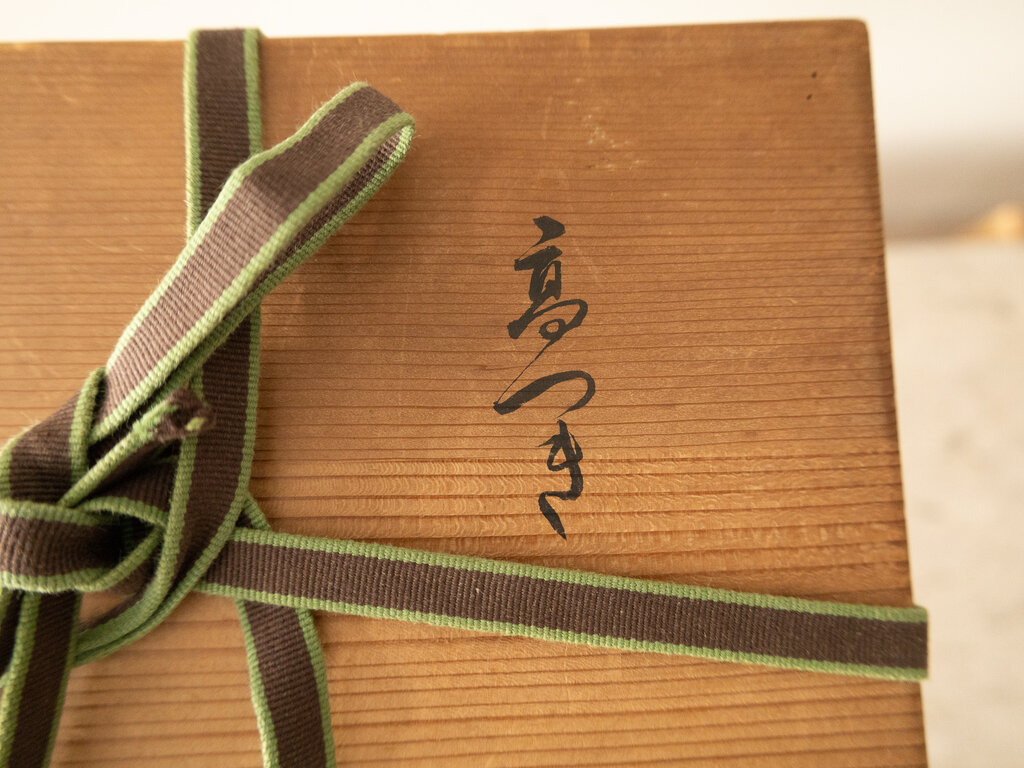 高つき